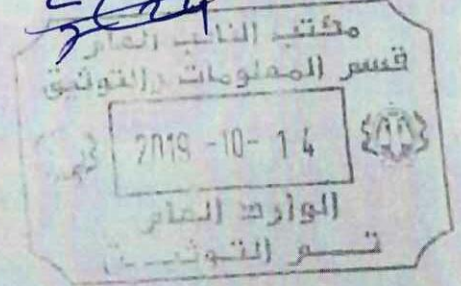 مكتب النائب العام
قسم المعلومات والتوثيق
2019 -10- 14
الوارد العام
تم التوثيق